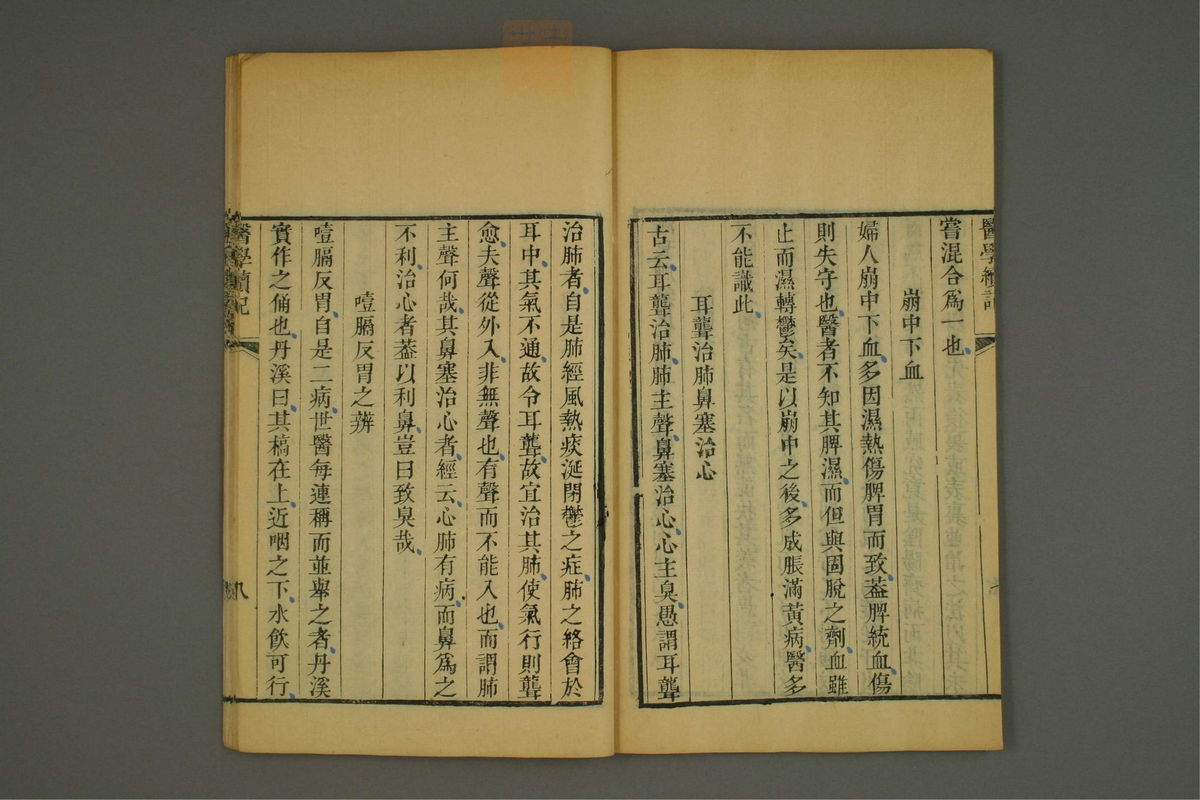 醫學續記
嘗混合爲一也
崩中下血
婦人崩中下血多因濕熱傷脾胃而致葢脾統血傷
則失守也醫者不知其脾濕而但與固脫之劑血雖
止而濕轉鬱矣是以崩中之後多成脹滿黃病醫多
不能識此
耳聾治肺鼻塞治心
古云耳聾治肺肺主聲鼻塞治心心主臭愚謂耳聾
治肺者自是肺經風熱痰涎閉鬱之症肺之絡會於
耳中其氣不通故令耳聾故宜治其肺使氣行則聾
愈夫聲從外入非無聲也有聲而不能入也而謂肺
主聲何哉其鼻塞治心者經云心肺有病而鼻爲之
不利治心者葢以利鼻豈曰致臭哉
噎膈反胃之辨
噎膈反胃自是二病世醫每連稱而並舉之者丹溪
實作之俑也丹溪曰其槁在上近咽之下水飲可行
醫學讀記
八